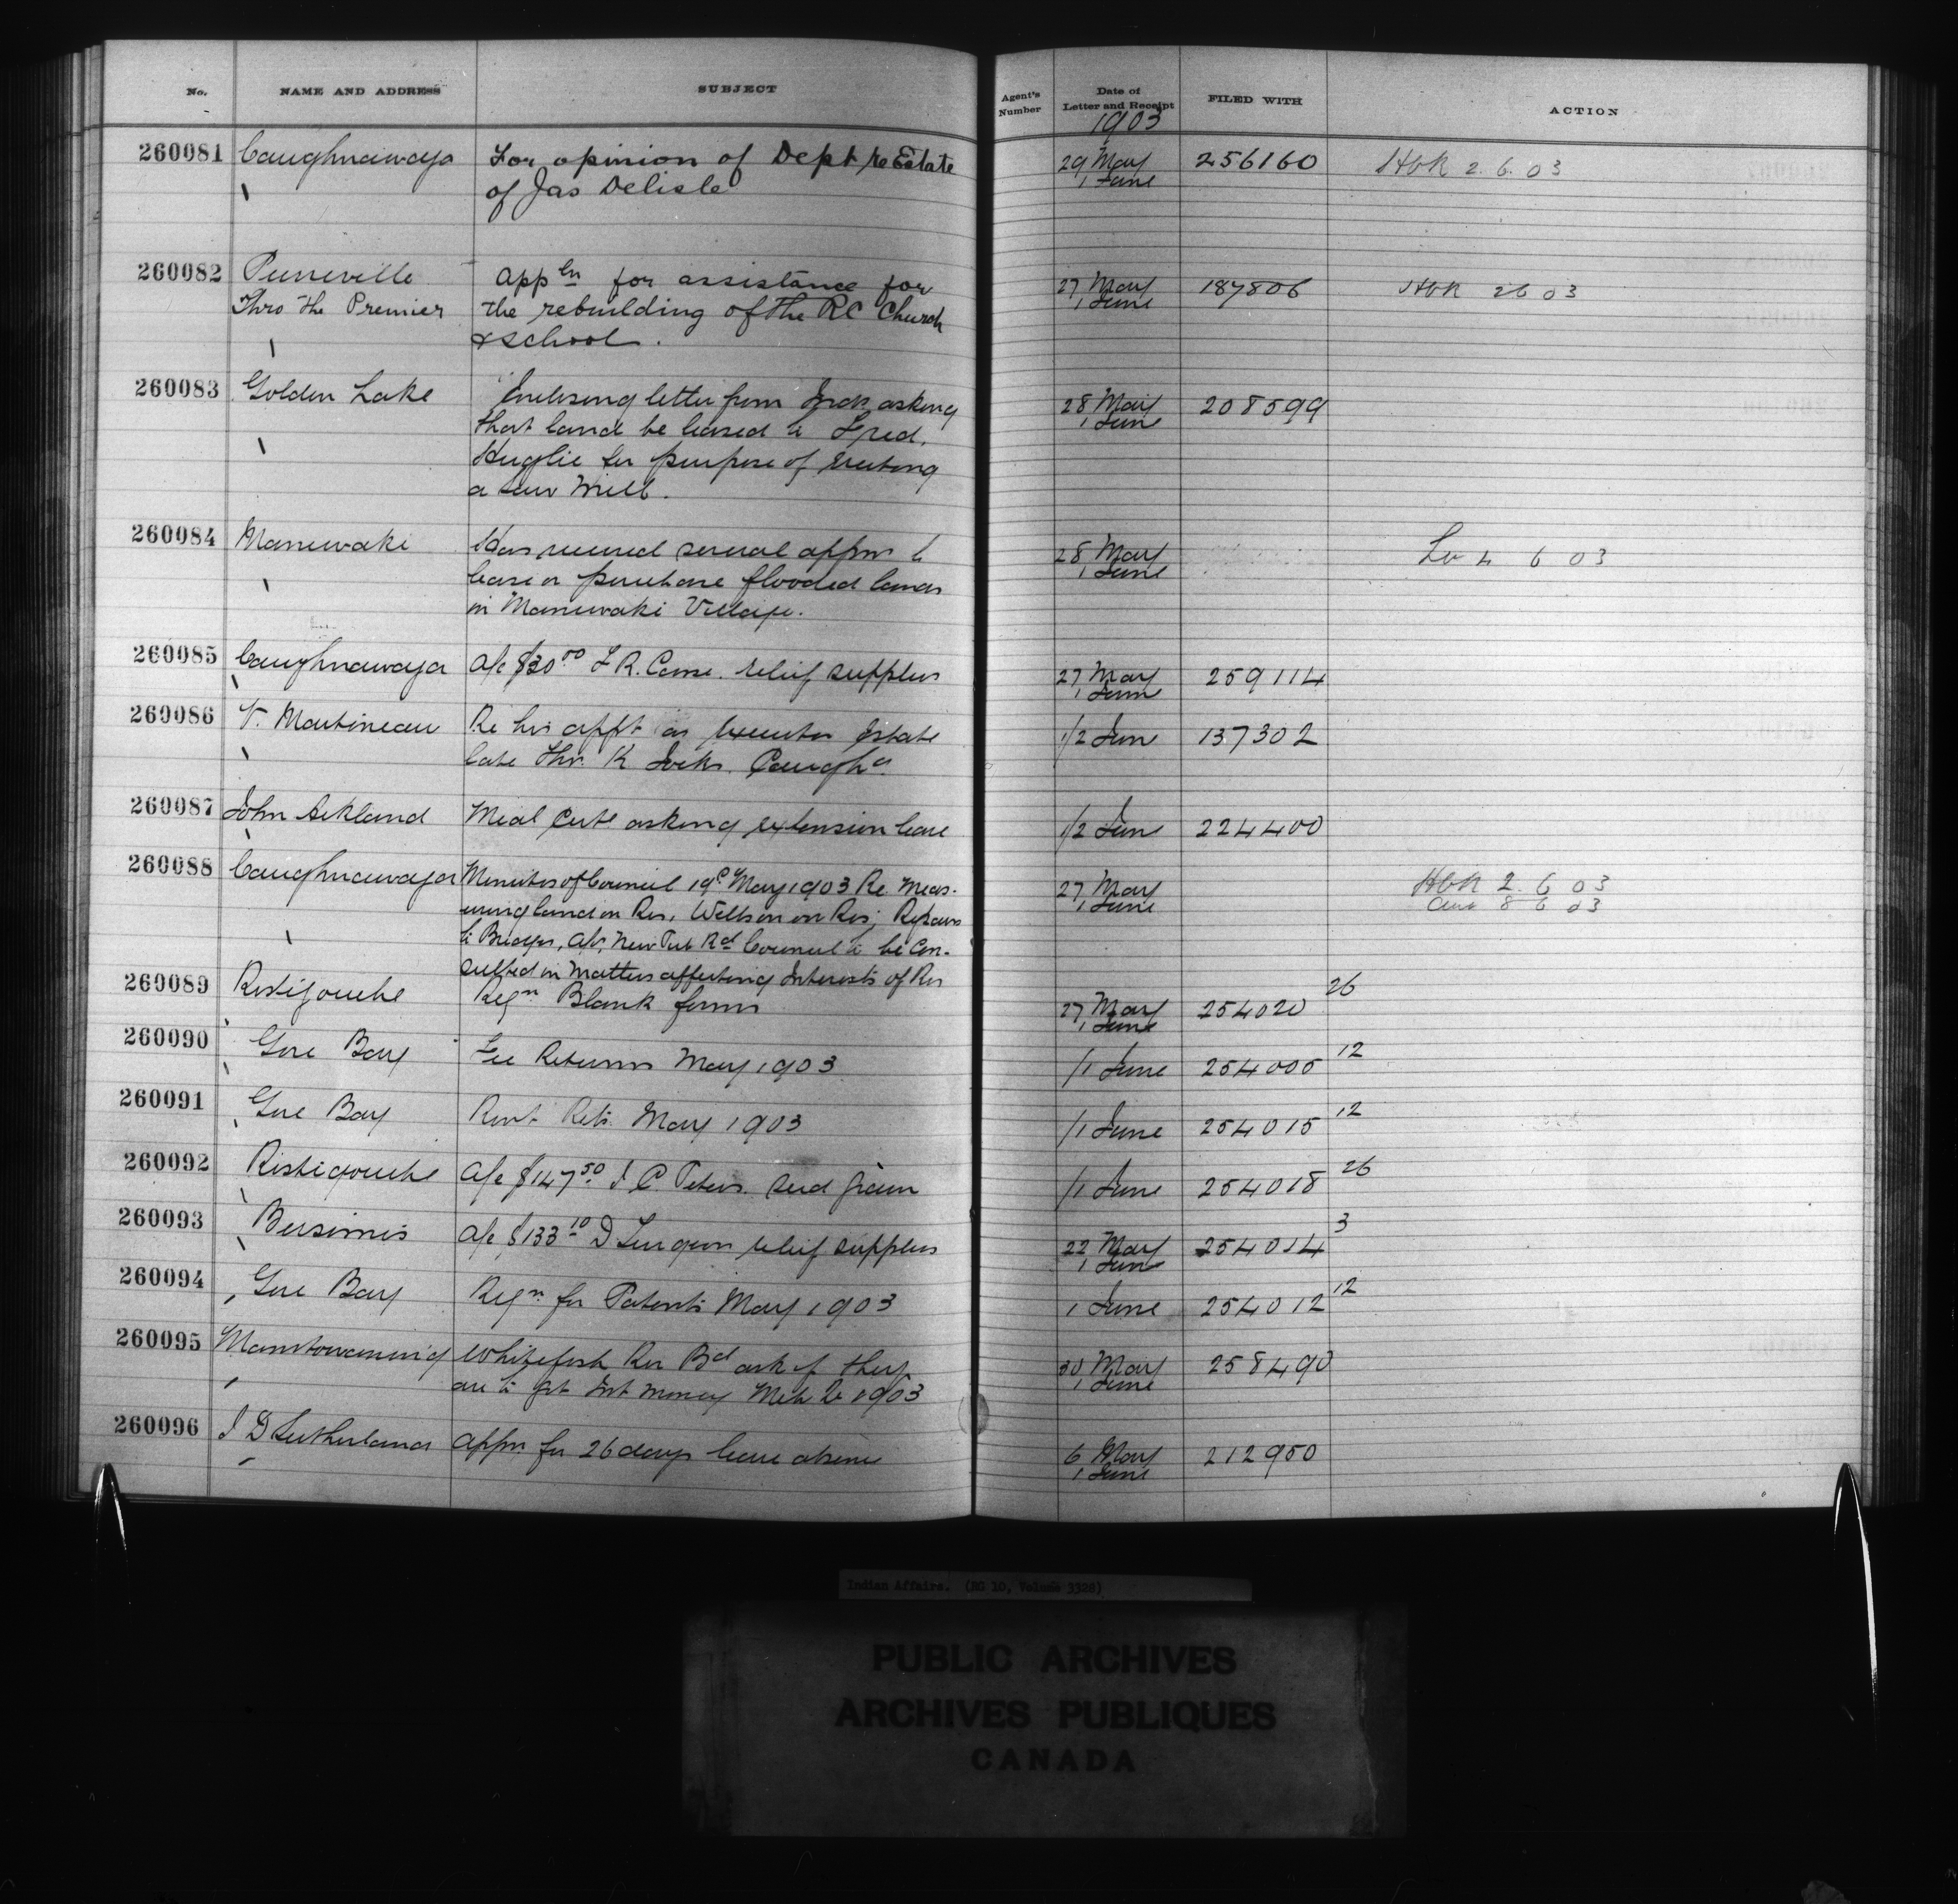 No. NAME AND ADDRESS SUBJECT Agent's Number Date of Letter and Receipt FILED WITH ACTION
1903
260081 Caughnawaga For opinion of Dept re Estate 29 May 256160 HbR 2. 6. 03
of Jas Delisle 1 June
260082 Pierreville Appln for assistance for 27 May 187806 HbR 2 6 03
Thro the Premier the rebuilding of the RC Church 1 June
& school.
260083 Golden Lake Enclosing letter from Inds asking 28 May 208599
that land be leased to Fred. 1 June
for purpose of erecting
a saw mill.
260084 Maniwaki Has received several appns to 28 May Lv 4 6 03
lease or purchase flooded lands 1 June
in Maniwaki Village.
260085 Caughnawaga a/c $30.00 F R. relief supplies 27 May 259114
1 June
260086 V. Martineau Re his appt as executor Estate 1/2 June 137302
late K Caugha
260087 John Ackland Medl Certe asking extension leave 1/2 June 224400
260088 Caughnawaga Minutes of Council 19 May 1903 Re Meas- 27 May HbR 2. 6 03
uring land on Res, on Res; Repairs 1 June 8 6 03
to Bridges, a/c, New Council to be Con-
sulted in Matters affecting Interests of Res
260089 Restigouche Reqn Blank forms 27 May 254020 26
1 June
260090 Gore Bay Fee Returns May 1903 /1 June 254005 12
260091 Gore Bay Rent Rets. May 1903 /1 June 254015 12
260092 Restigouche a/c $147.50 J C. Peters. seed grain /1 June 254018 26
260093 Bersimis a/c $133.10 D relief supplies 22 May 254014 3
1 June
260094 Gore Bay Reqn for Patents May 1903 1 June 254012 12
260095 Manitowaning Whitefish Riv Bd ask if they 30 May 258490
are to get Int money 1903 1 June
260096 J D Sutherland Appn for 26 days leave absence 6 May 212950
1 June
Indian Affairs. (RG 10, Volume 3328)
PUBLIC ARCHIVES
ARCHIVES PUBLIQUES
CANADA